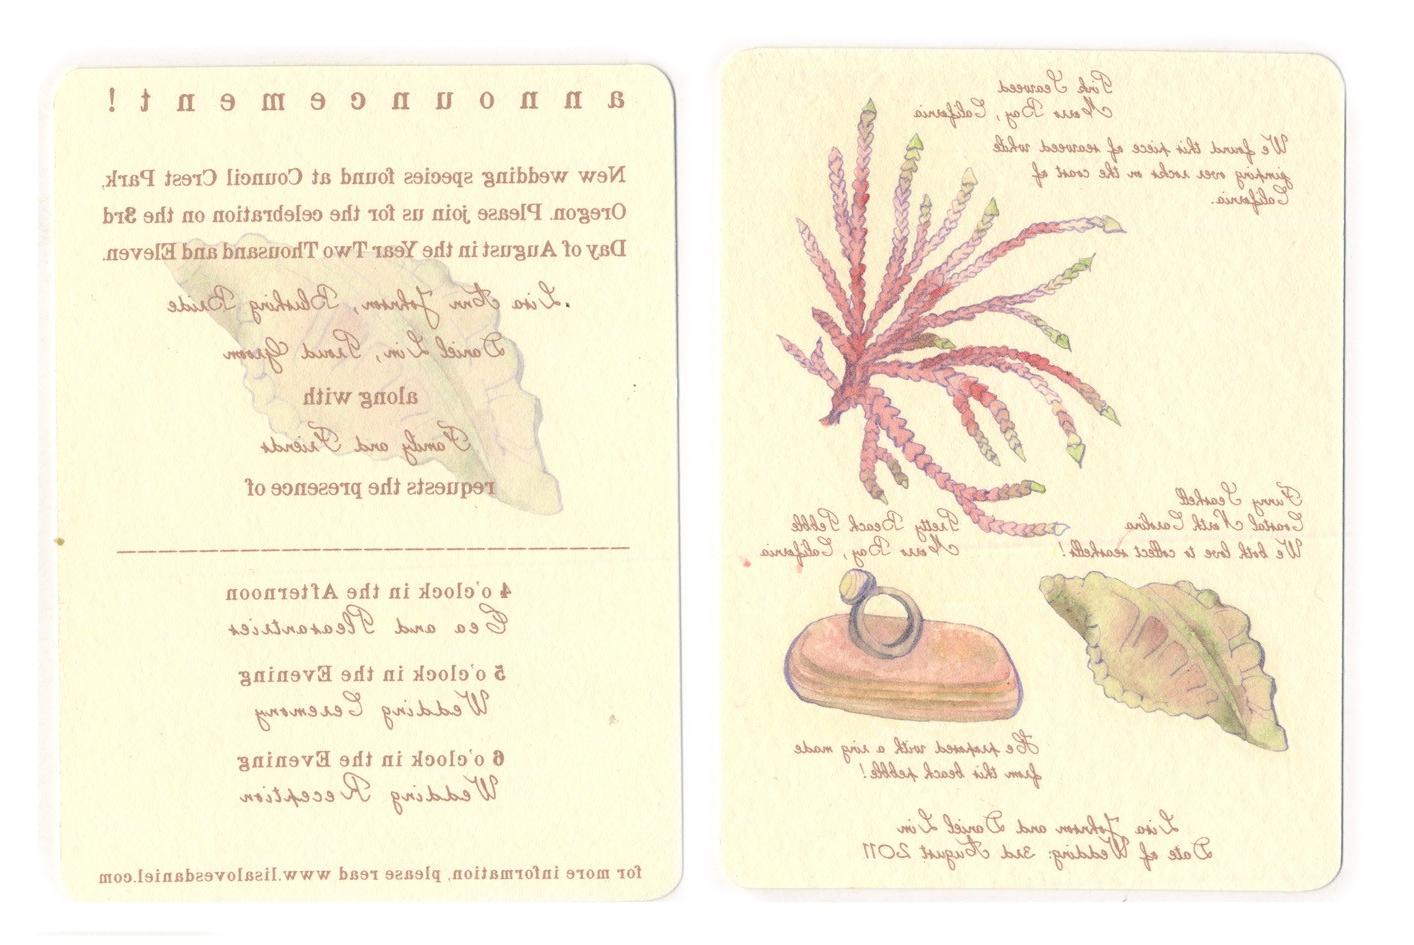 announcement!
New wedding species found at Council Crest Park,
Oregon. Please join us for the celebration on the 3rd
Day of August in the Year Two Thousand and Eleven.
Lisa Ann Johnson, Blushing Bride
Daniel Lim, Proud Groom
along with
Family and Friends
requests the presence of
4 o'clock in the Afternoon
Tea and Pleasantries
5 o'clock in the Evening
Wedding Ceremony
6 o'clock in the Evening
Wedding Reception
for more information, please read www.lisalovesdaniel.com
Pink Seaweed
Morro Bay, California
We found this piece of seaweed while
jumping over rocks on the coast of
California.
Pretty Beach Pebble
Morro Bay, California
Funny Seashell
Coastal North Carolina
We both love to collect seashells!
He proposed with a ring made
from this beach pebble!
Lisa Johnson and Daniel Lim
Date of Wedding: 3rd August 2011